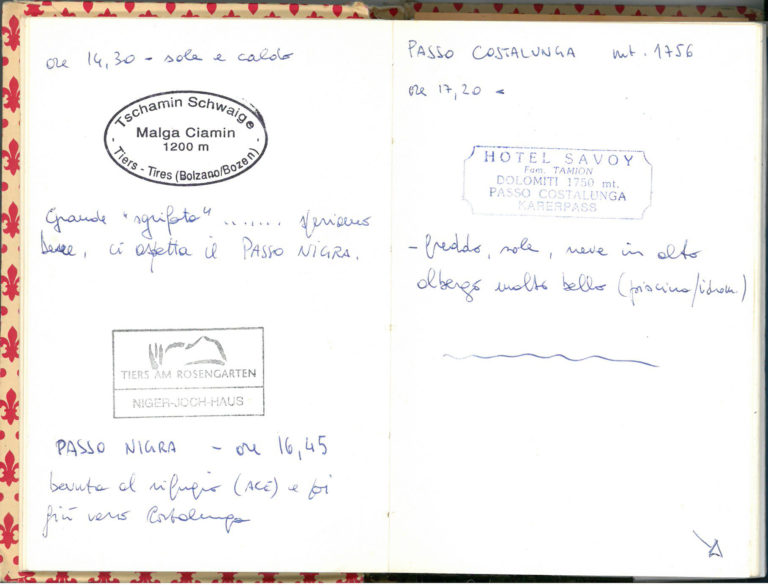 ore 14,30 - sole e caldo
Tschamin Schwaige
Malga Ciamin
1200 m
- Tiers - Tires (Bolzano/Bozen) -
Grande "sgrifata" ....... speriamo
bene, ci aspetta il PASSO NIGRA.
TIERS AM ROSENGARTEN
NIGER-JOCH-HAUS
PASSO NIGRA - ore 16,45
bevuta al rifugio (ACE) e poi
giù verso Costalunga
PASSO COSTALUNGA mt. 1756
ore 17,20 -
HOTEL SAVOY
Fam. TAMION
DOLOMITI 1750 mt.
PASSO COSTALUNGA
KARERPASS
- freddo, sole, neve in alto
albergo molto bello (piscina/idrom.)